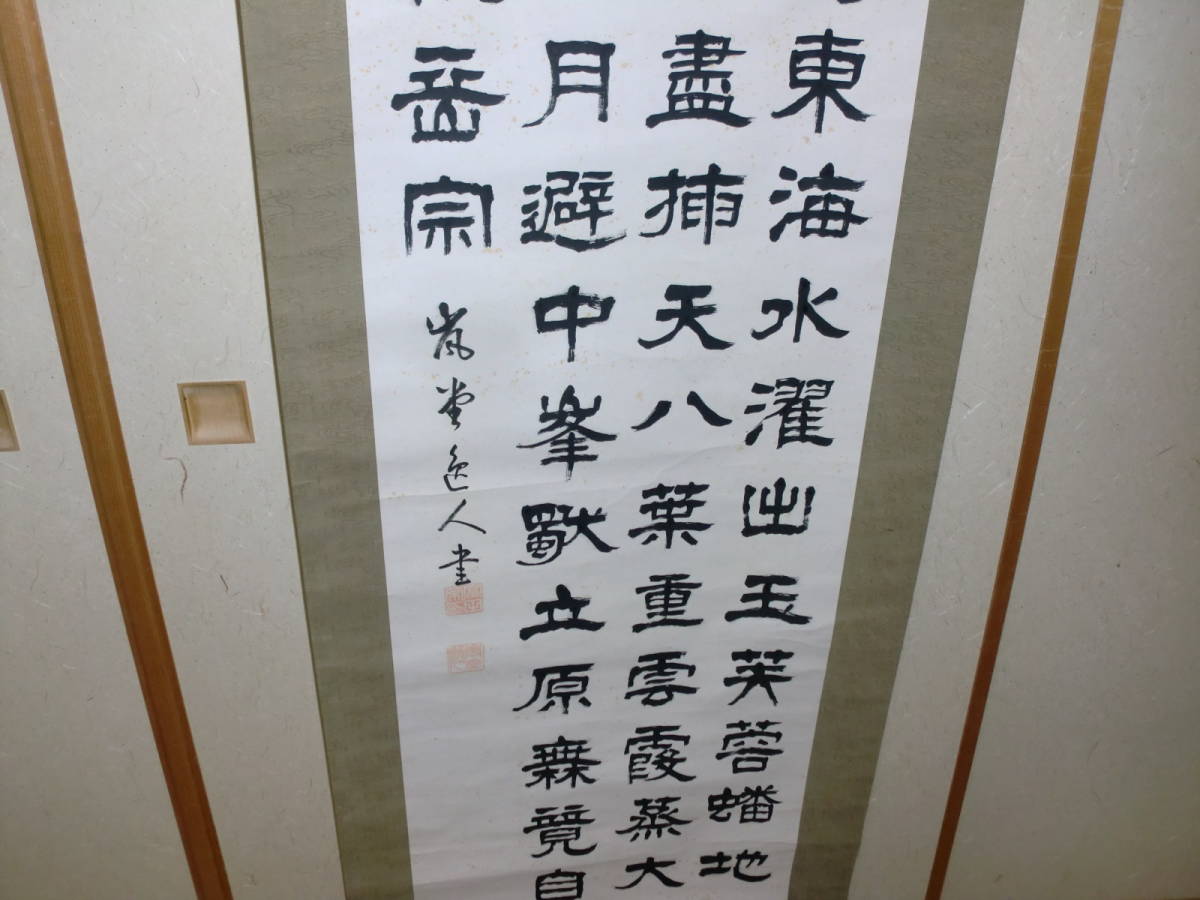 東海水濯出玉芙蓉蟠地
盡挿天八葉重雲霞蒸大
月避中峯獨立原無競自
岳宗
嵐堂逸人書